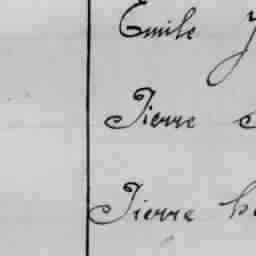 Emile
Pierre
Pierre